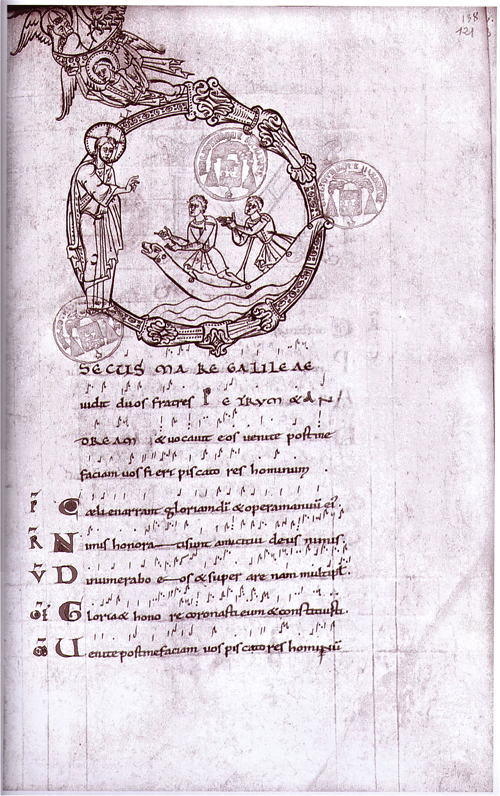 138
121
SECUS MARE GALILEAE
uidit duos fratres PETRUM & AN/
DREAM & uocauit eos uenite postme
faciam uos fieri piscatores hominum
Caeli enarrant gloriam di & opera manuū ei
R Nimis honorati sunt amici tui deus nimis.
V Dinumerabo eos & super arenam multipł.
Gloria & honore coronasti eum & constituisti.
Uenite postme faciam uos piscatores hominū